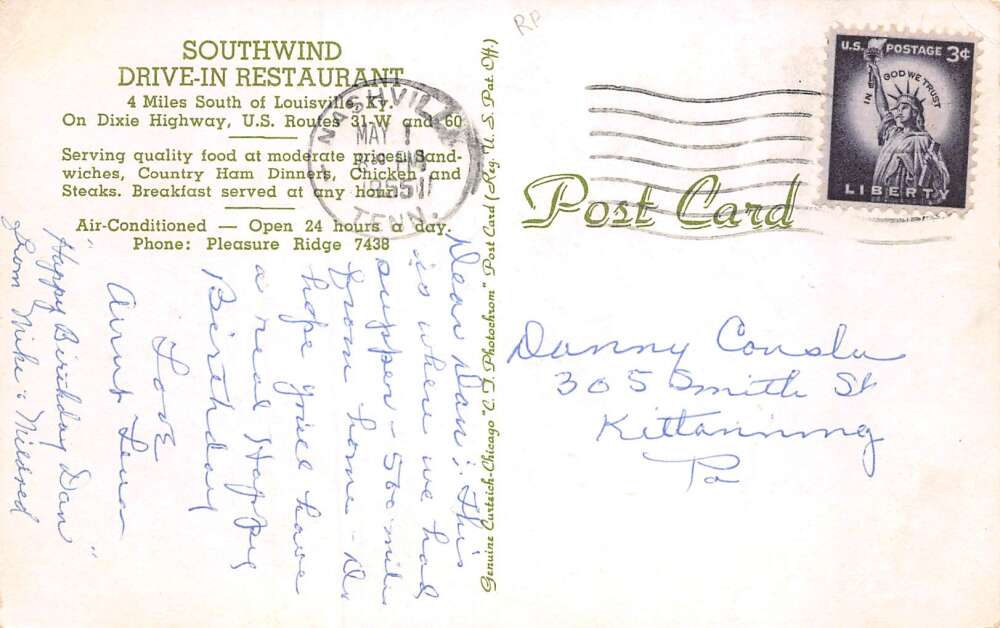 SOUTHWIND
DRIVE-IN RESTAURANT
4 Miles South of Louisville, Ky.
On Dixie Highway, U.S. Routes 31-W and 60
Serving quality food at moderate prices. Sand-
wiches, Country Ham Dinners, Chicken and
Steaks. Breakfast served at any hour.
Air-Conditioned — Open 24 hours a day.
Phone: Pleasure Ridge 7438
Dear Dan: This
is where we had
supper - 500 miles
from home - Do
hope you'll have
a real Happy
Birthday
Love
Aunt Lena
"Happy Birthday Dan"
from Mike & Mildred
NASHVILLE
MAY 1
PM
TENN.
Genuine Curteich-Chicago "C. T. Photochrom" Post Card (Reg. U. S. Pat. Off.)
RP
Post Card
U.S. POSTAGE 3¢
IN GOD WE TRUST
LIBERTY
Danny
305 Smith St
Kittanning
Pa